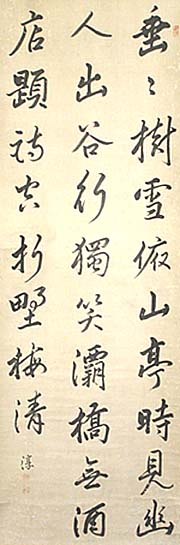 垂〻樹雪俯山亭時見幽
人出谷行獨笑灞橋無酒
店題詩空折野梅清
淳